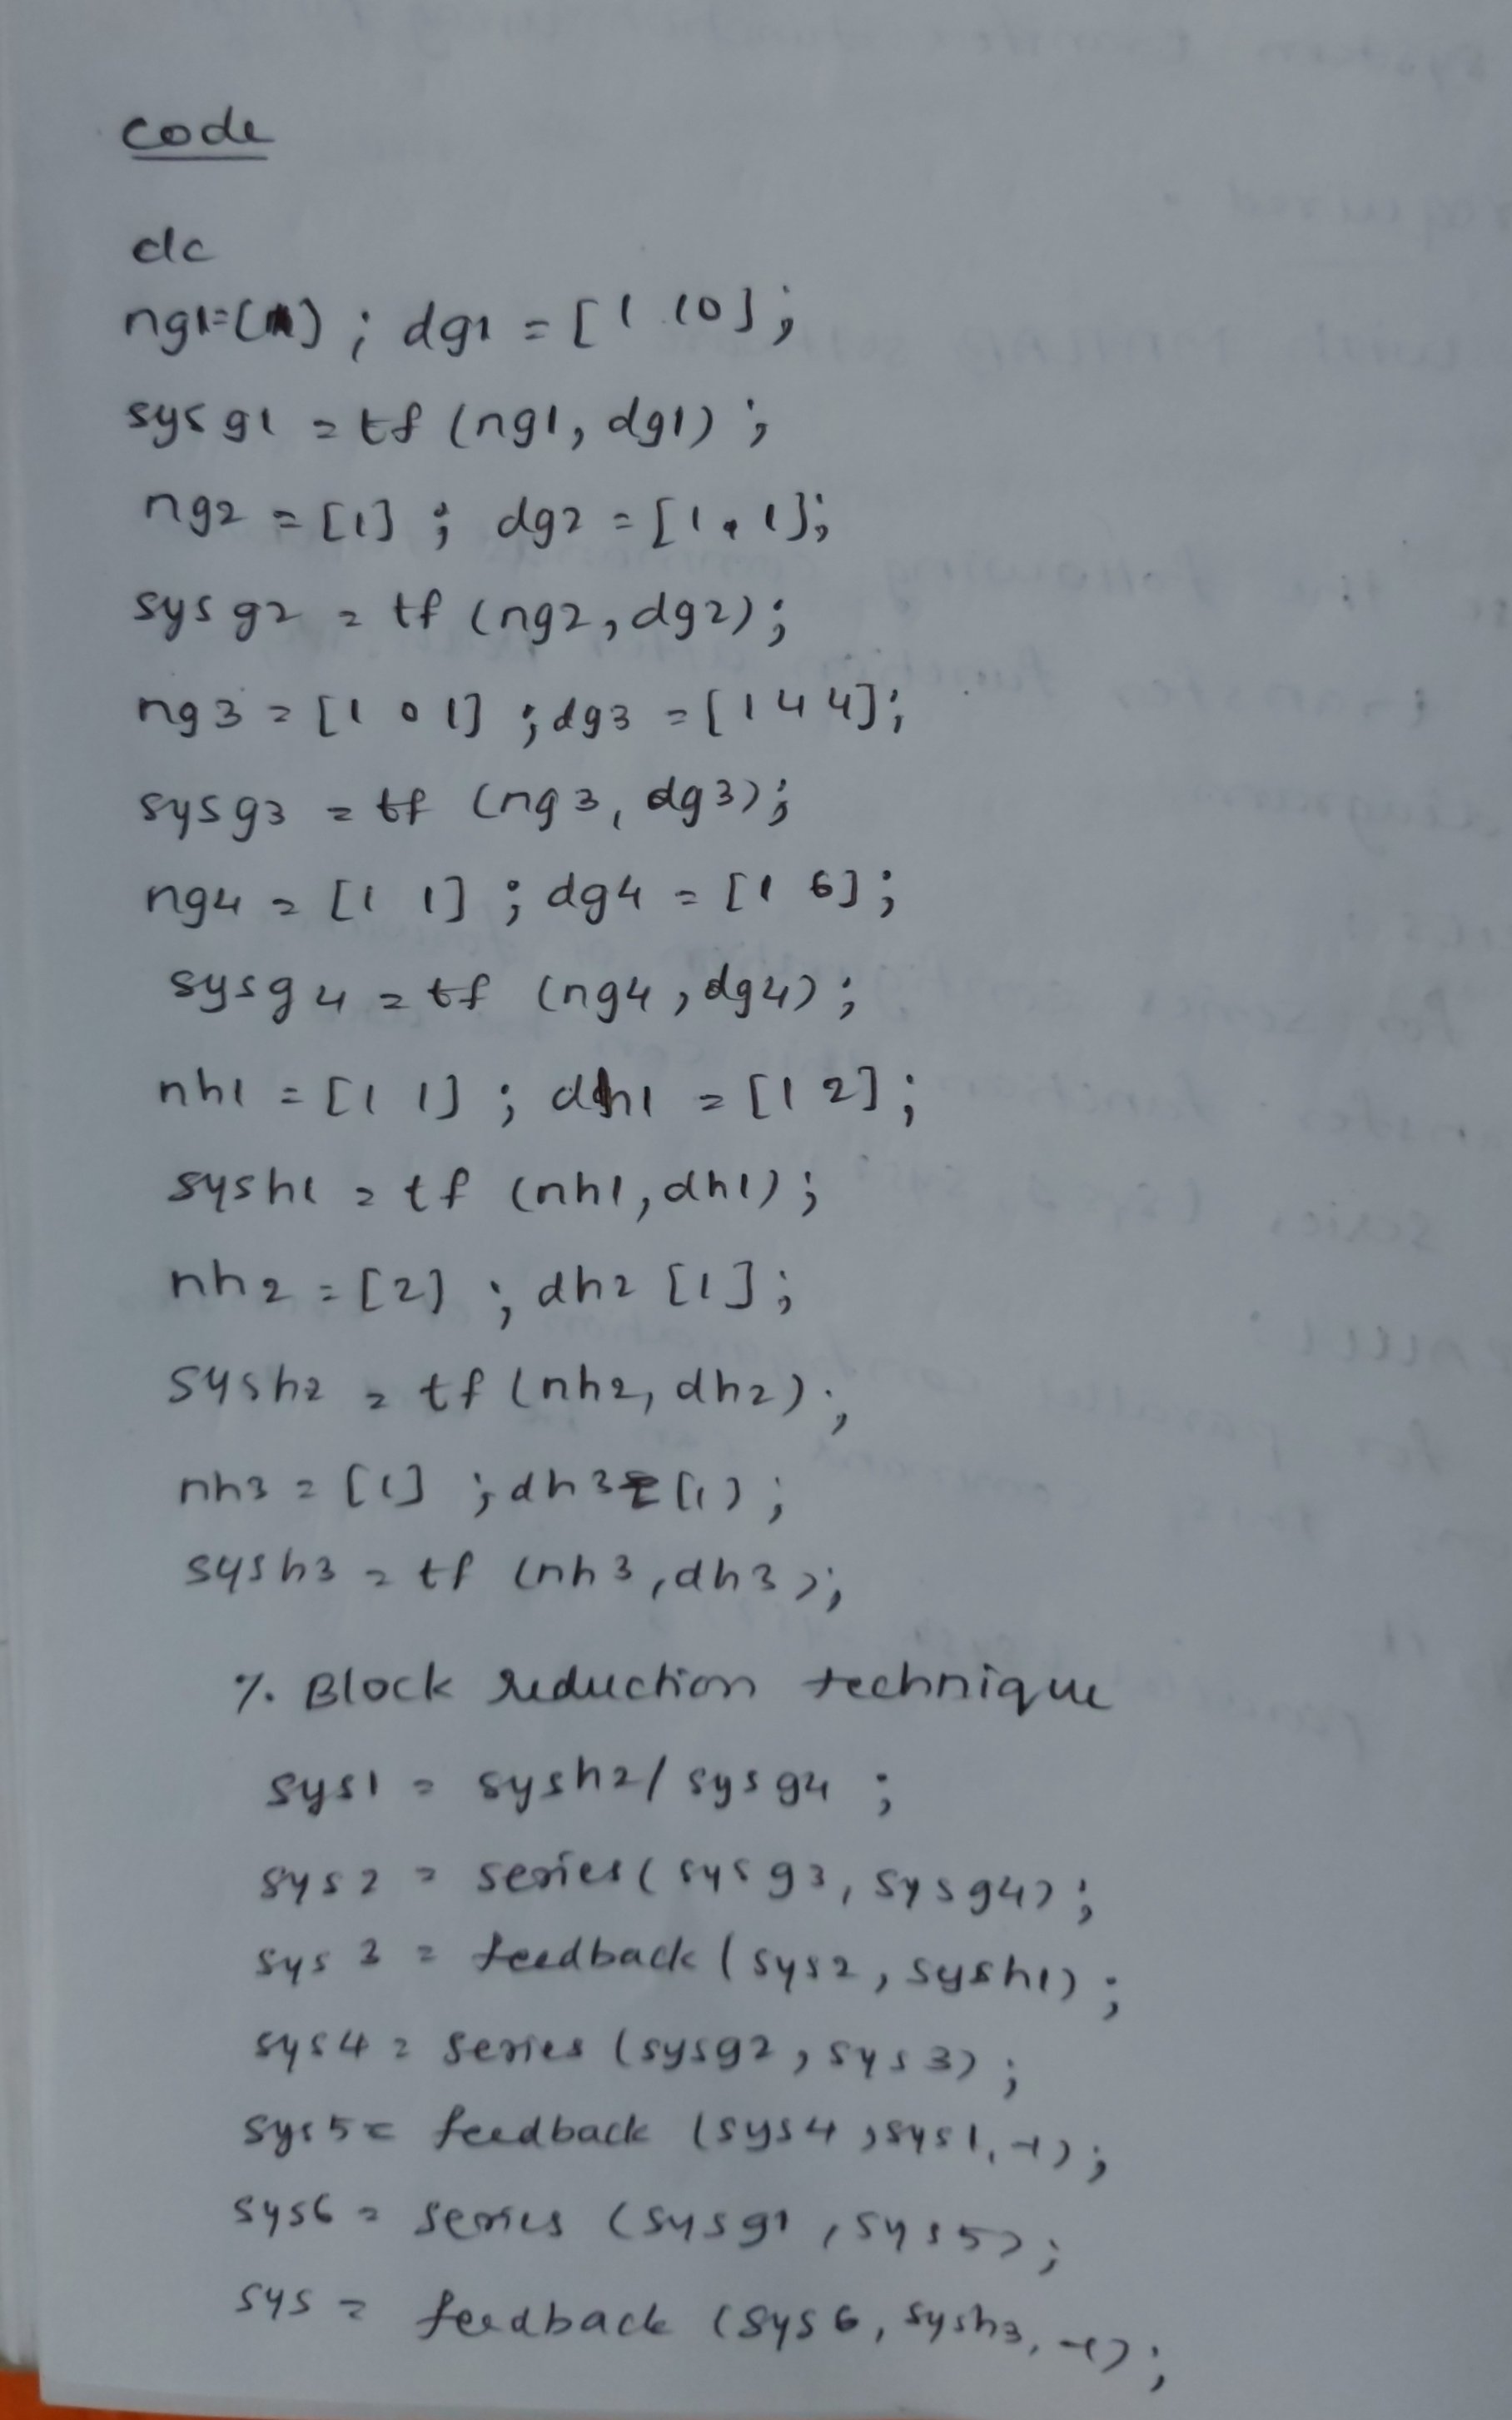 code
clc
ng1=[1] ; dg1 = [1 10];
sysg1 = tf (ng1, dg1) ;
ng2 = [1] ; dg2 = [1 1];
sysg2 = tf (ng2, dg2);
ng3 = [1 0 1] ; dg3 = [1 4 4];
sysg3 = tf (ng3, dg3);
ng4 = [1 1] ; dg4 = [1 6];
sysg4 = tf (ng4, dg4) ;
nh1 = [1 1] ; dh1 = [1 2] ;
sysh1 = tf (nh1, dh1) ;
nh2 = [2] ; dh2 [1] ;
sysh2 = tf (nh2, dh2) ;
nh3 = [1] ; dh3 = [1] ;
sysh3 = tf (nh3, dh3) ;
% Block reduction technique
sys1 = sysh2/sysg4 ;
sys2 = series (sysg3, sysg4) ;
sys3 = feedback (sys2, sysh1) ;
sys4 = series (sysg2, sys3) ;
sys5 = feedback (sys4, sys1, -1) ;
sys6 = series (sysg1, sys5) ;
sys = feedback (sys6, sysh3, -1) ;